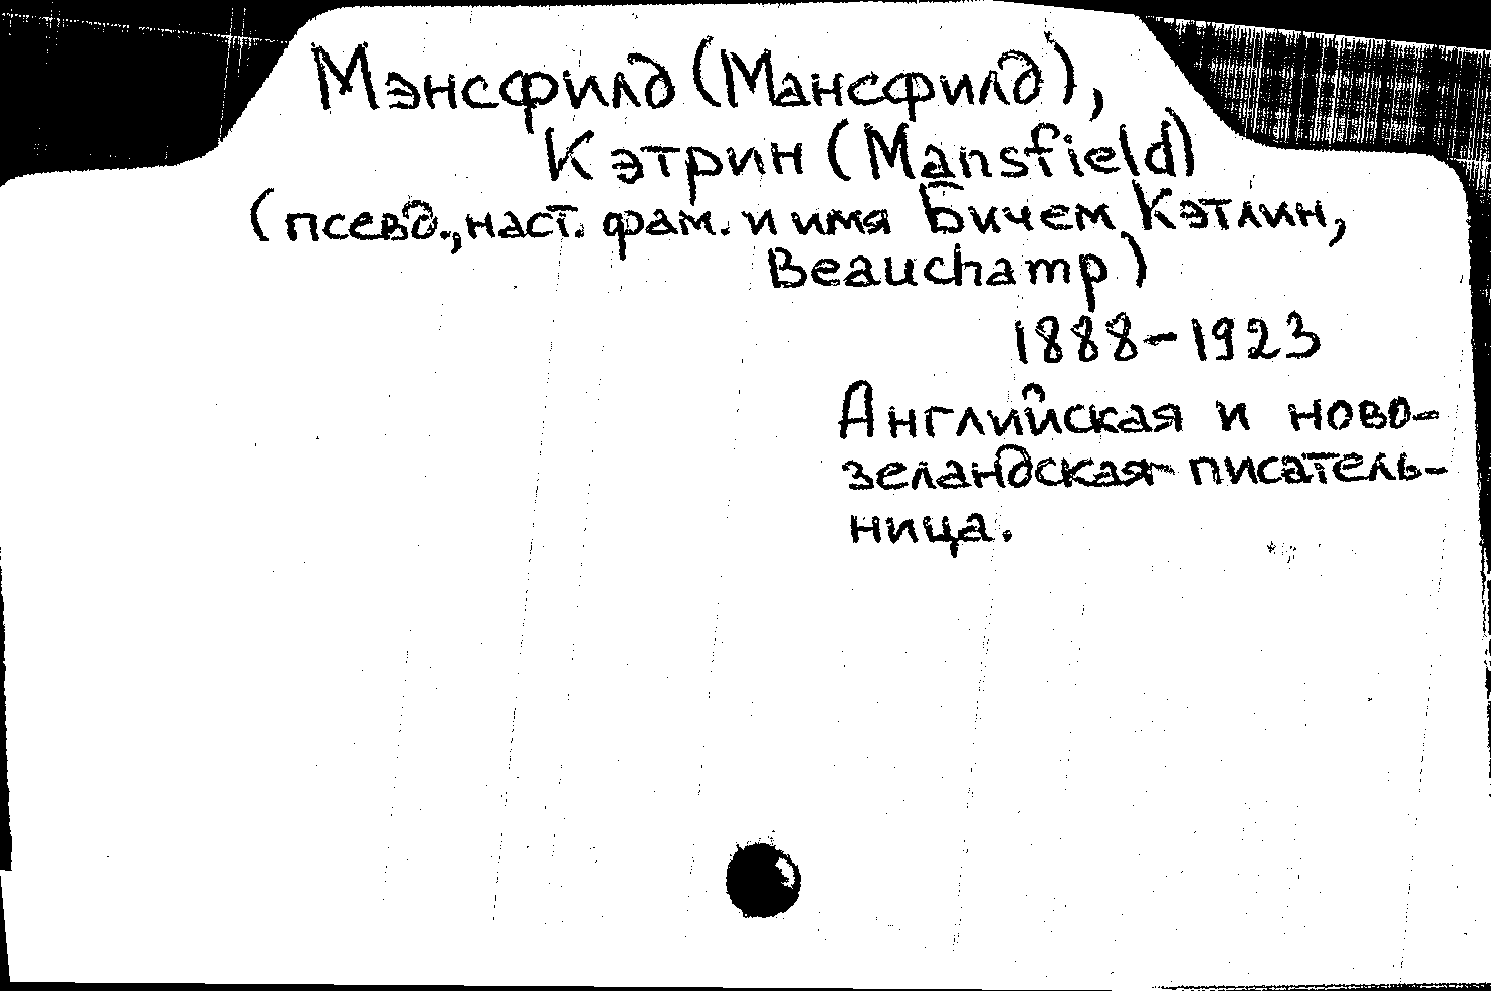 Мэнсфилд (Мансфилд),
Кэтрин (Mansfield)
(псевд., наст. фам. и имя Бичем Кэтлин,
Beauchamp)
1888-1923
Английская и ново-
зеландская писатель-
ница.